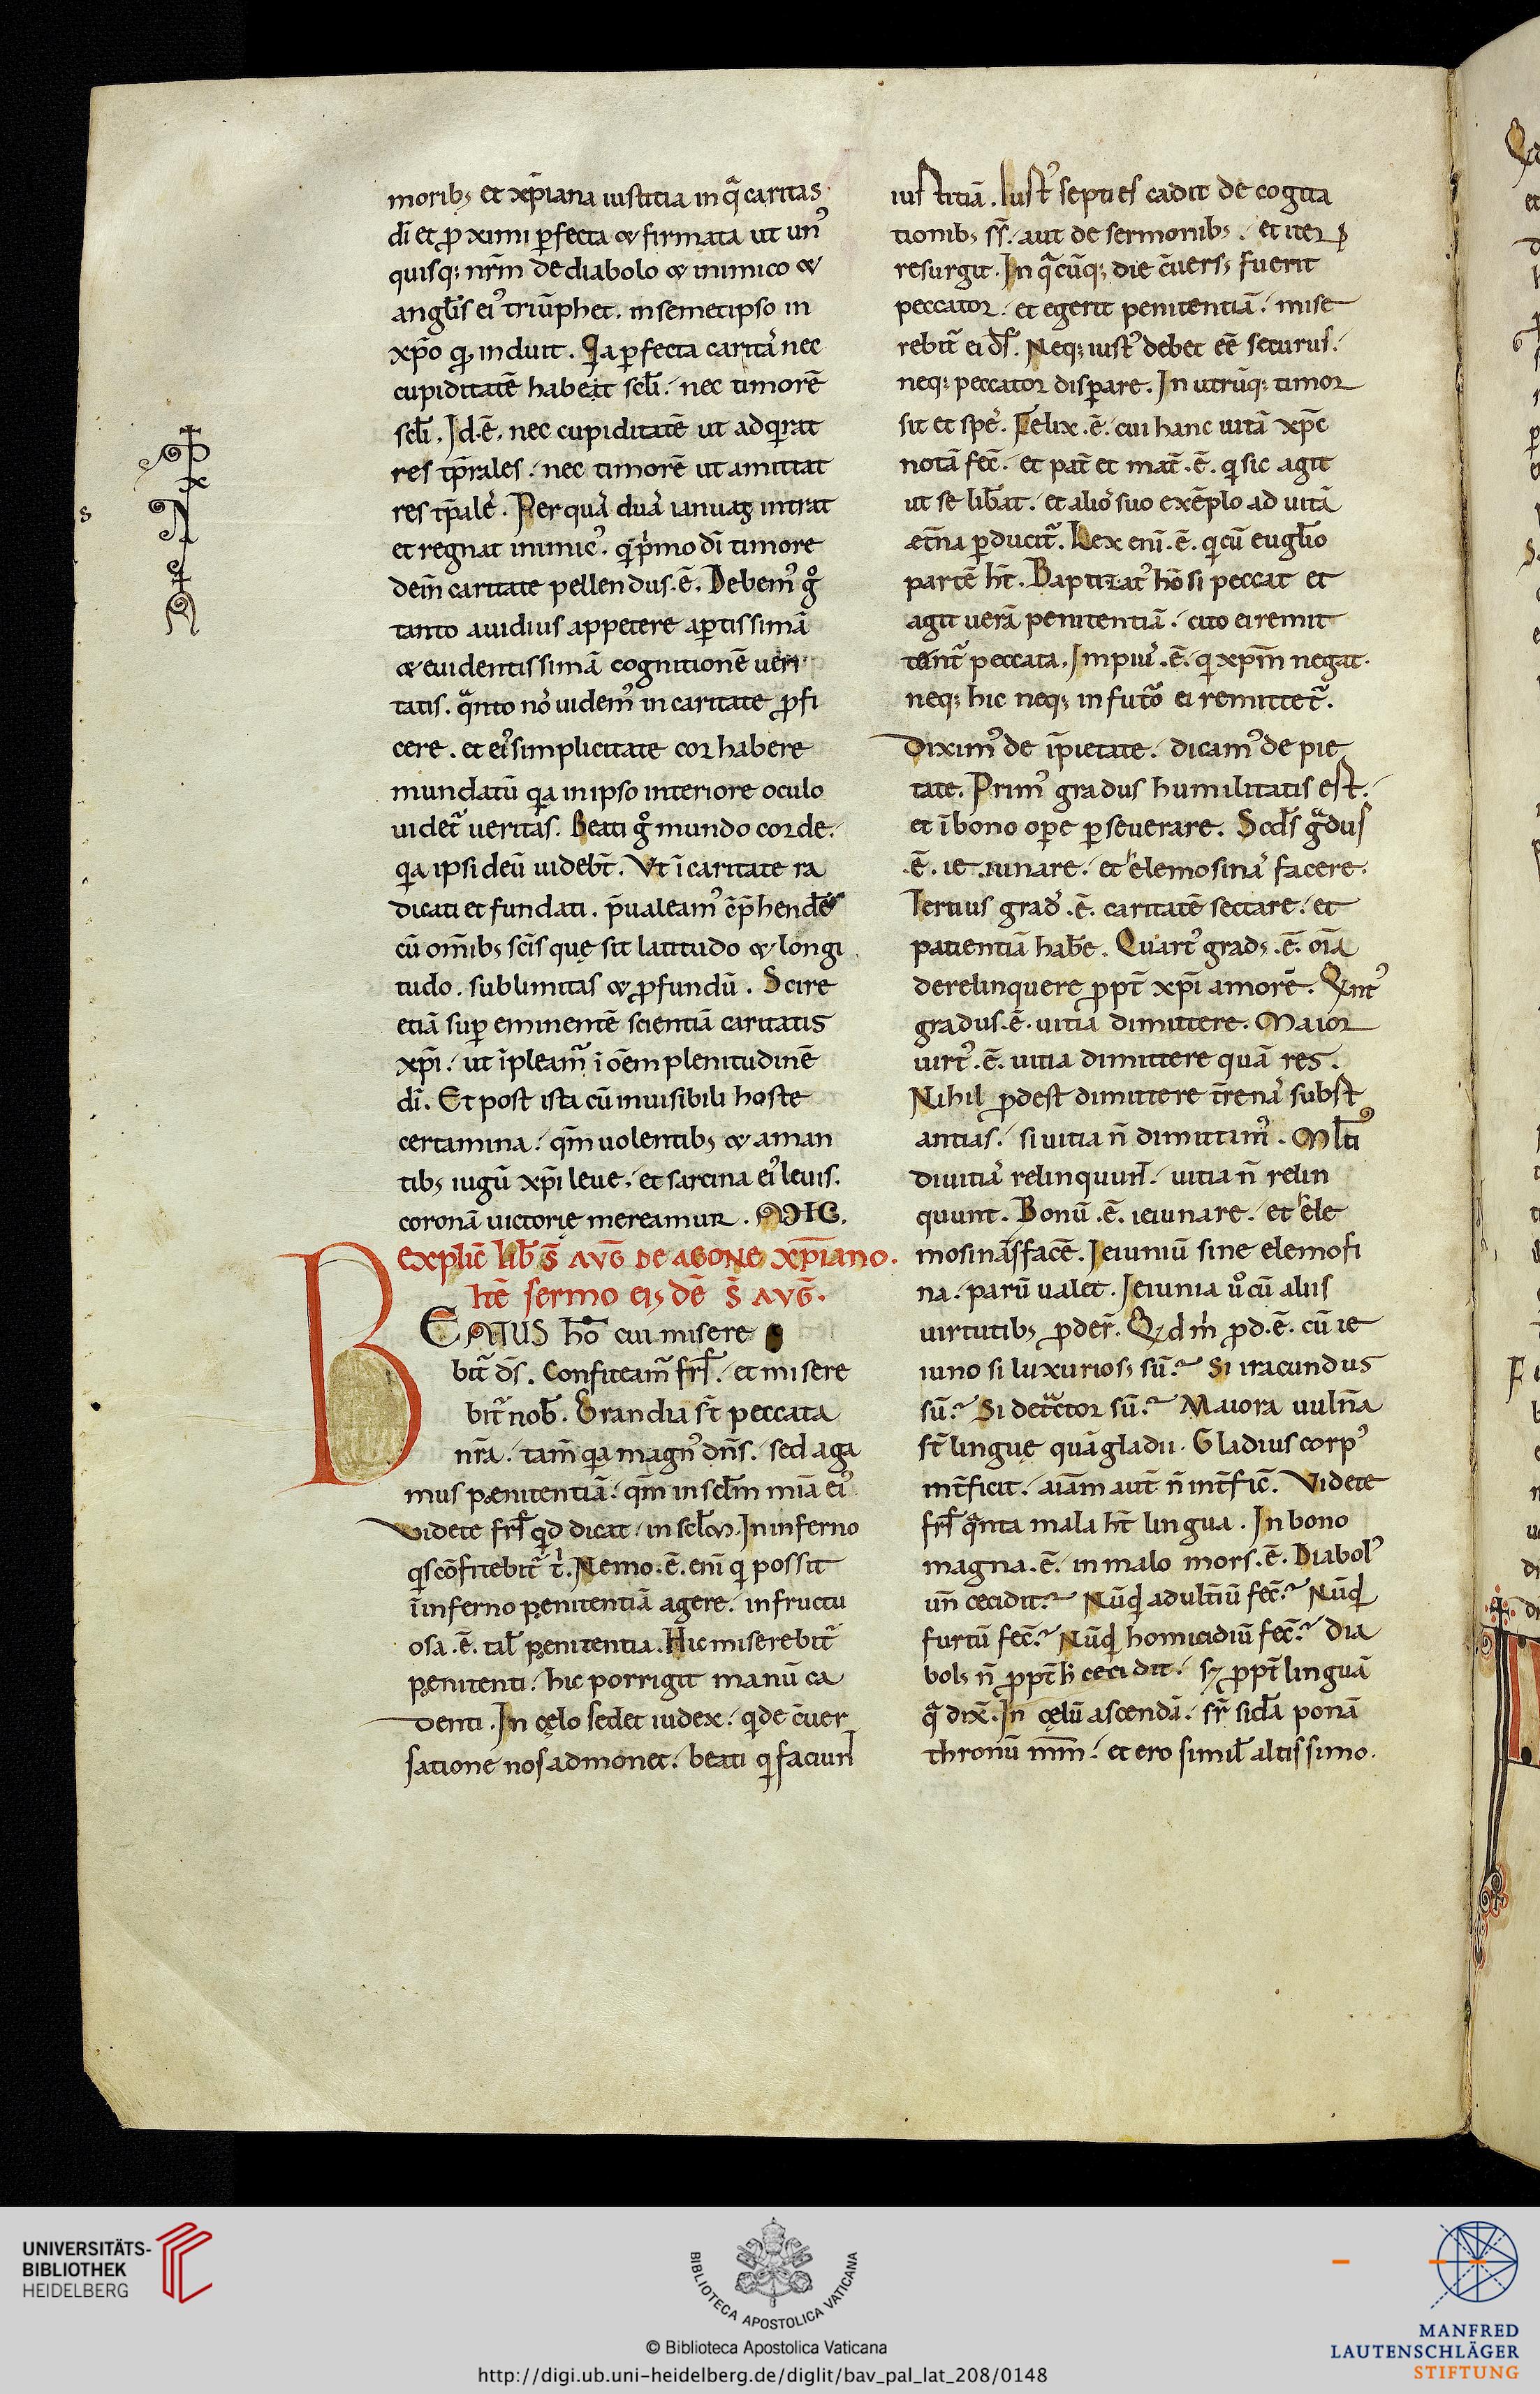 morib; et xp̄iana iustitia in qᷓ caritas
dī et ꝓximi ꝑfecta & firmata ut unꝰ
quisq; nr̄m de diabolo & inimico &
angl̄is eiꝰ triūphet. insemetipso in
xp̄o qē induit. Ꝗa ꝑfecta caritaˢ nec
cupiditatē habeat scl̄i. nec timorē
scl̄i. Id.ē. nec cupiditatē ut adqͥrat
res tp̄rales. nec timorē ut amittat
res tp̄aleˢ. Per quaˢ duaˢ ianuas intrat
et regnat inimicꝰ. qͥ pͥmo dī timore
dein̄ caritate pellendus.ē. Debemꝰ gͦ
tanto auidius appetere aꝑtissimā
& euidentissimā cognitionē ueri
tatis. qᷓnto noˢ uidemꝰ in caritate ꝓfi
cere. et eiꝰ simplicitate cor habere
mundatū qa in ipso interiore oculo
uidet᷑ ueritas. Beati gͦ mundo corde.
qa ipsi deū uidebt̄. Vt ī caritate ra
dicati et fundati. p̄ualeamꝰ cp̄hendēr̄
cū om̄ib; scīs quę sit latitudo & longi
tudo. sublimitas & ꝓfundū. Scire
etiā suꝑ eminentē scientiā caritatis
xp̄i. ut īpleam᷑ ī oēm plenitudinē
dī. Et post ista cū inuisibili hoste
certamina. qm̄ uolentib; & aman
tib; iugū xp̄i leue. et sarcina eiꝰ leuis.
coronā uictorię mereamur. AMHC.
explic̄ lib̄ S̄ AVḠ DE AGONE XP̄IANO.
it̄ē sermo ei;dē S̄ AVḠ.
BEATUS hō cui misere
bit᷑ ds̄. Confiteam᷑ frī̄. et misere
bit᷑ nob̄. Grandia st̄ peccata
nr̄a. tam̄ qa magnꝰ dn̄s. sed aga
mus pęnitentiā. qm̄ in scl̄m mīa eiꝰ
Videte fr̄ī qd dicat. in scl̄o. In inferno
qͥs cōfitebit᷑ tͥ. Nemo.ē. enī qͥ possit
ī inferno pęnitentiā agere. infructu
osa.ē. tal̄ pęnitentia. Hic miserebit᷑
pęnitenti. hic porrigit manū ca
denti. In cęlo sedet iudex. qͥ de c̄uer
satione nos admonet. beati qͥ faciun̄
iustitiā. Iustꝰ septies cadit de cogita
tionib; ss̄. aut de sermonib;. et iterꝝ
resurgit. In qᷓcūq; die c̄uers; fuerit
peccator. et egerit penitentiā. mise
rebit᷑ ei ds̄. Neq; iustꝰ debet eē̄ securus.
neq; peccator disꝑare. In utrūq; timor
sit et speˢ. Felix.ē. cui hanc uitā xp̄c
notā fec̄. et pat̄ et mat̄.ē. qͥ sic agit
ut se lib̄at. et alioˢ suo exēplo ad uitā
æt̄na ꝑducit᷑. Lex enī.ē. qͥ cū eugl̄io
partē ht̄. Baptizatꝰ hō si peccat et
agit uerā penitentiā. cito ei remit
tent᷑ peccata. Impiuˢ.ē. qͥ xpm̄ negat.
neq; hic neq; in fut᷑o ei remittet᷑.
Diximꝰ de īpietate. dicamꝰ de pie
tate. Primꝰ gradus humilitatis est.
et ī bono oꝑe ꝑseuerare. Scds̄ gᷓdus
.ē. ieiunare. et elemosinaˢ facere.
Tertius gradꝰ.ē. caritatē sectare. et
patientiā hab̄e. Quartꝰ grad;.ē. oīa
derelinquere ꝓpt̄ xp̄i amorē. Qͥntꝰ
gradus.ē. uitia dimittere. Maior
uirtꝰ.ē. uitia dimittere quā res.
Nihil ꝓdest dimittere t̄renaˢ subst
antias. si uitia n̄ dimittimꝰ. Ml̄tiꝰ
diuitiaˢ relinquun̄. uitia n̄ relin
quunt. Bonū.ē. ieiunare. et ele
mosinas fac̄e. Ieiuniū sine elemosi
na. parū ualet. Ieiunia uͦ cū aliis
uirtutib; ꝓder̄. Qͥd mͥ ꝓd.ē. cū ie
iuno si luxurios; sū. Si iracundus
sū. Si detᷓctor sū. Maiora uuln̄a
st̄ linguę quā gladii. Gladius corpꝰ
int̄ficit. aīam aut̄ n̄ int̄fic̄. Videte
fr̄ī qᷓnta mala ht̄ lingua. In bono
magna.ē. in malo mors.ē. Diabolꝰ
un̄ cecidit. Nūqͥd adult̄iū fec̄. Nūqͥd
furtū fec̄. Nūqͥd homicidiū fec̄. Dia
bol; n̄ ꝓpt̄ h̄ cecidit. sꝫ ꝓpt̄ linguā
qᷓ dix̄. In cęlū ascendā. sr̄ sidā ponā
thronū mm̄. et ero simil̄ altissimo.
UNIVERSITÄTS-
BIBLIOTHEK
HEIDELBERG
BIBLIOTECA APOSTOLICA VATICANA
© Biblioteca Apostolica Vaticana
http://digi.ub.uni-heidelberg.de/diglit/bav_pal_lat_208/0148
MANFRED
LAUTENSCHLÄGER
STIFTUNG